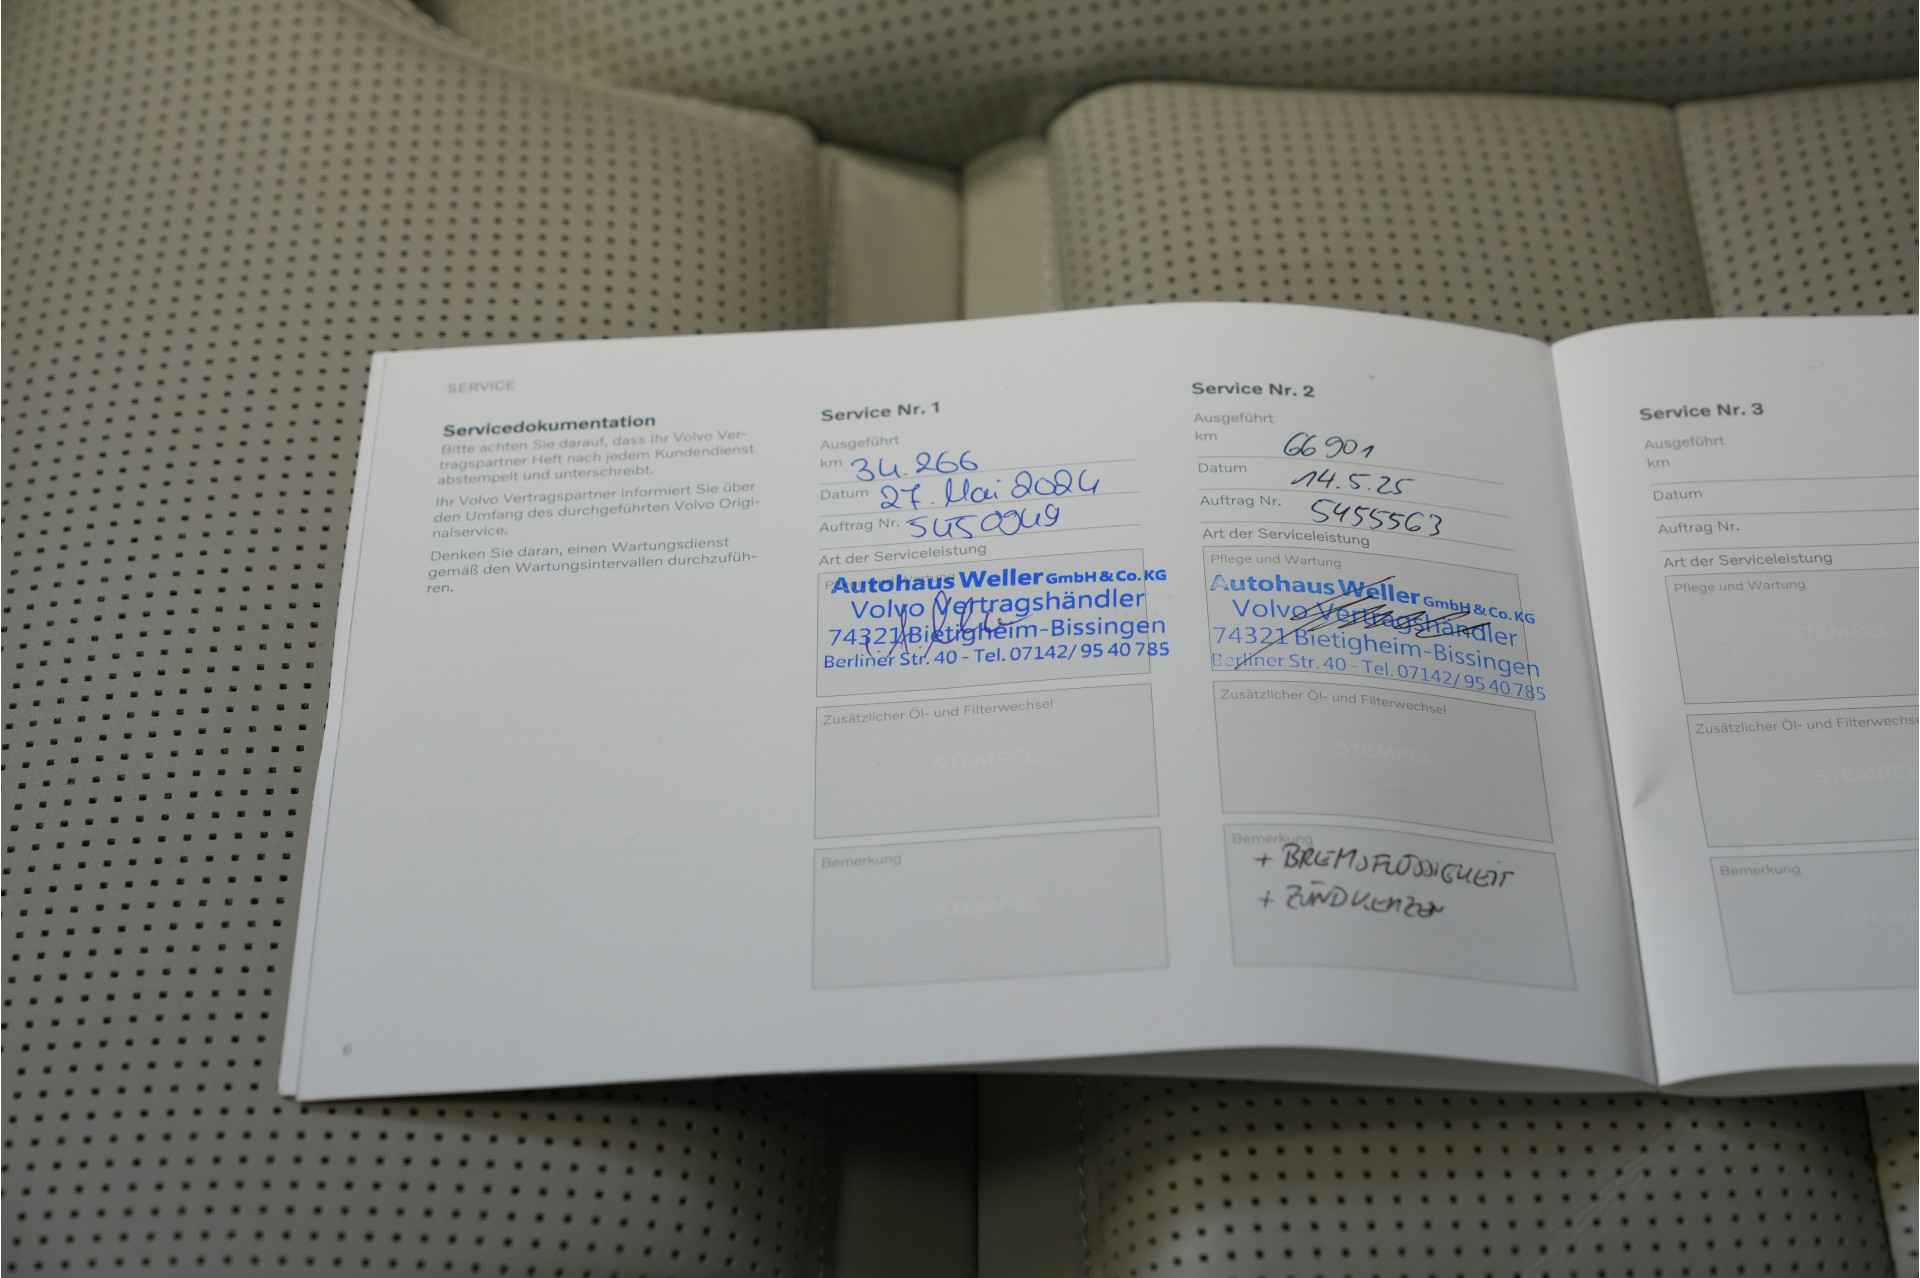 SERVICE
Servicedokumentation
Bitte achten Sie darauf, dass Ihr Volvo Ver-
tragspartner Heft nach jedem Kundendienst
abstempelt und unterschreibt.
Ihr Volvo Vertragspartner informiert Sie über
den Umfang des durchgeführten Volvo Origi-
nalservice.
Denken Sie daran, einen Wartungsdienst
gemäß den Wartungsintervallen durchzufüh-
ren.
6
Service Nr. 1
Ausgeführt
km 34.266
Datum 27. Mai 2024
Auftrag Nr. 5450949
Art der Serviceleistung
Pflege und Wartung
Autohaus Weller GmbH & Co. KG
Volvo Vertragshändler
74321 Bietigheim-Bissingen
Berliner Str. 40 - Tel. 07142/ 95 40 785
Zusätzlicher Öl- und Filterwechsel
STEMPEL
Bemerkung
STEMPEL
Service Nr. 2
Ausgeführt
km 66 901
Datum 14.5.25
Auftrag Nr. 5455563
Art der Serviceleistung
Pflege und Wartung
Autohaus Weller GmbH & Co. KG
Volvo Vertragshändler
74321 Bietigheim-Bissingen
Berliner Str. 40 - Tel. 07142/ 95 40 785
Zusätzlicher Öl- und Filterwechsel
STEMPEL
Bemerkung
+ BREMSFLÜSSIGKEIT
+ ZÜNDKERZEN
Service Nr. 3
Ausgeführt
km
Datum
Auftrag Nr.
Art der Serviceleistung
Pflege und Wartung
STEMPEL
Zusätzlicher Öl- und Filterwechse
STEMPEL
Bemerkung